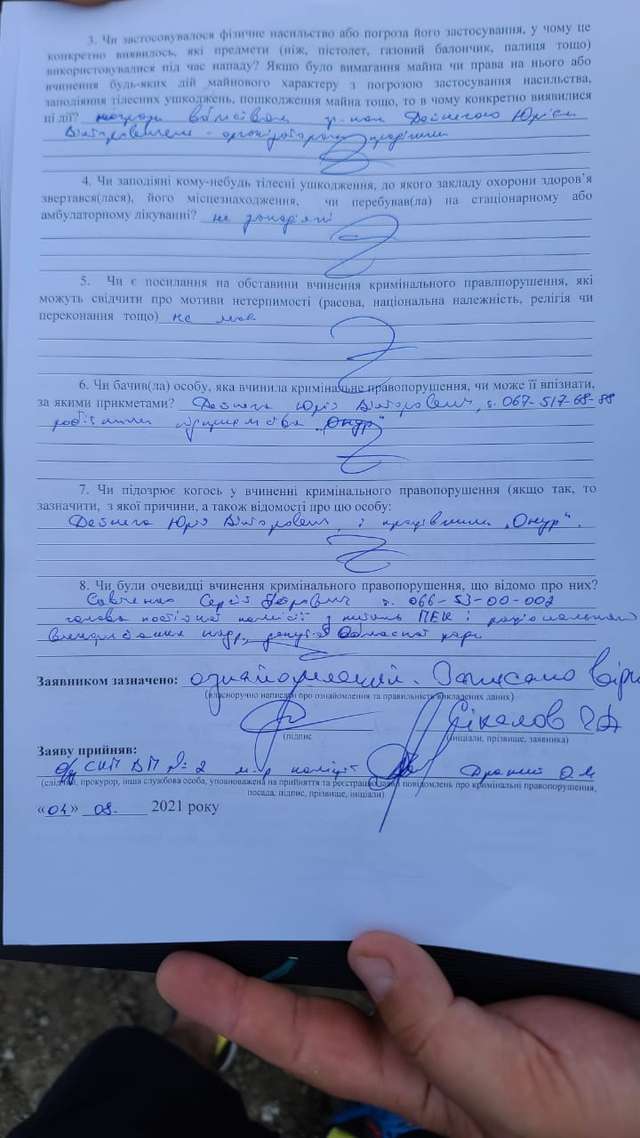 3. Чи застосовувалося фізичне насильство або погроза його застосування, у чому це
конкретно виявилось, які предмети (ніж, пістолет, газовий балончик, палиця тощо)
використовувалися під час нападу? Якщо було вимагання майна чи права на нього або
вчинення будь-яких дій майнового характеру з погрозою застосування насильства,
заподіяння тілесних ушкоджень, пошкодження майна тощо, то в чому конкретно виявилися
ці дії? погрози Юрієм
Вікторовичем - організатором
4. Чи заподіяні кому-небудь тілесні ушкодження, до якого закладу охорони здоров'я
звертався(лася), його місцезнаходження, чи перебував(ла) на стаціонарному або
амбулаторному лікуванні? не заподіяні
5. Чи є посилання на обставини вчинення кримінального правлпорушення, які
можуть свідчити про мотиви нетерпимості (расова, національна належність, релігія чи
переконання тощо) не має
6. Чи бачив(ла) особу, яка вчинила кримінальне правопорушення, чи може її впізнати,
за якими прикметами? Дейнега Юрій Вікторович, т. 067-517-68-88
робітники підприємства „Онур"
7. Чи підозрює когось у вчиненні кримінального правопорушення (якщо так, то
зазначити, з якої причини, а також відомості про цю особу:
Дейнега Юрій Вікторович, і працівники „Онур".
8. Чи були очевидці вчинення кримінального правопорушення, що відомо про них?
Савченко Сергій Петрович т. 066-53-00-002
голова постійної комісії з питань ПЕК і раціонального
надр, депутат обласної ради
Заявником зазначено: ознайомлений. Записано вірно
(власноручно написати про ознайомлення та правильність викладених даних)
Сікалов
(підпис) (ініціали, прізвище, заявника)
Заяву прийняв:
о/у СКП ВП № 2 О.М.
(слідчий, прокурор, інша службова особа, уповноважена на прийняття та реєстрацію заяв повідомлень про кримінальні правопорушення,
посада, підпис, прізвище, ініціали)
«04» 08. 2021 року